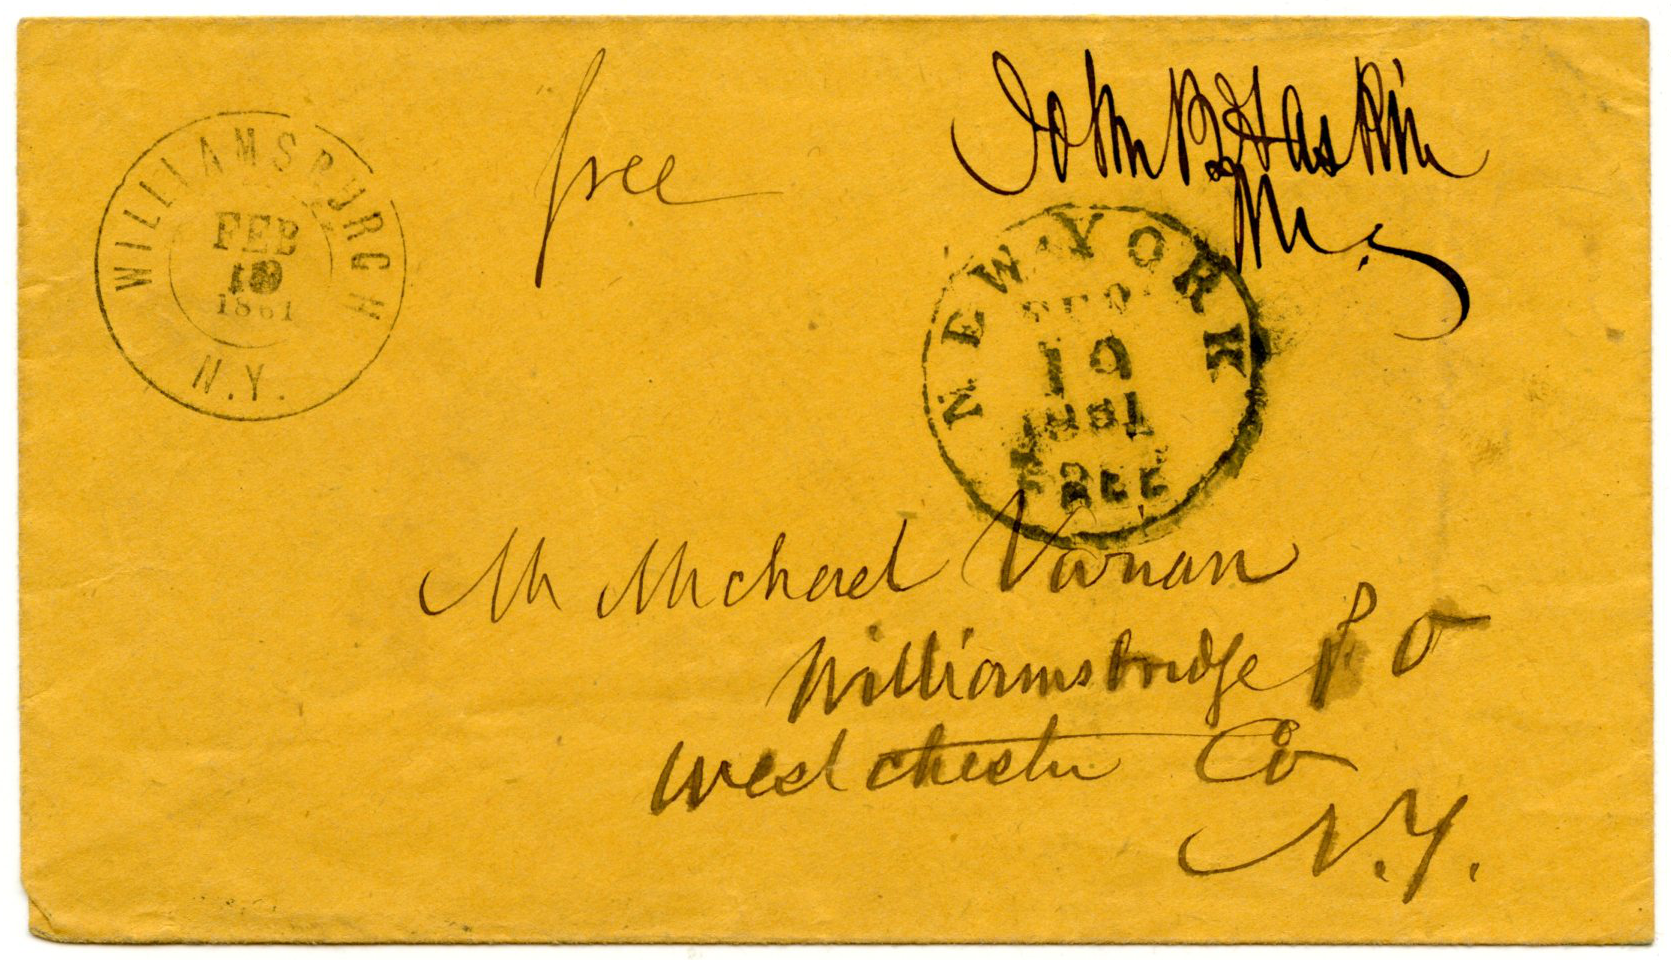 WILLIAMSBURGH
FEB
1861
N.Y.
free
John B Haskin
M.C.
NEW-YORK
FEB
19
1861
FREE
Mr Michael Varian
Williamsbridge P. O
Westchester Co
N.Y.